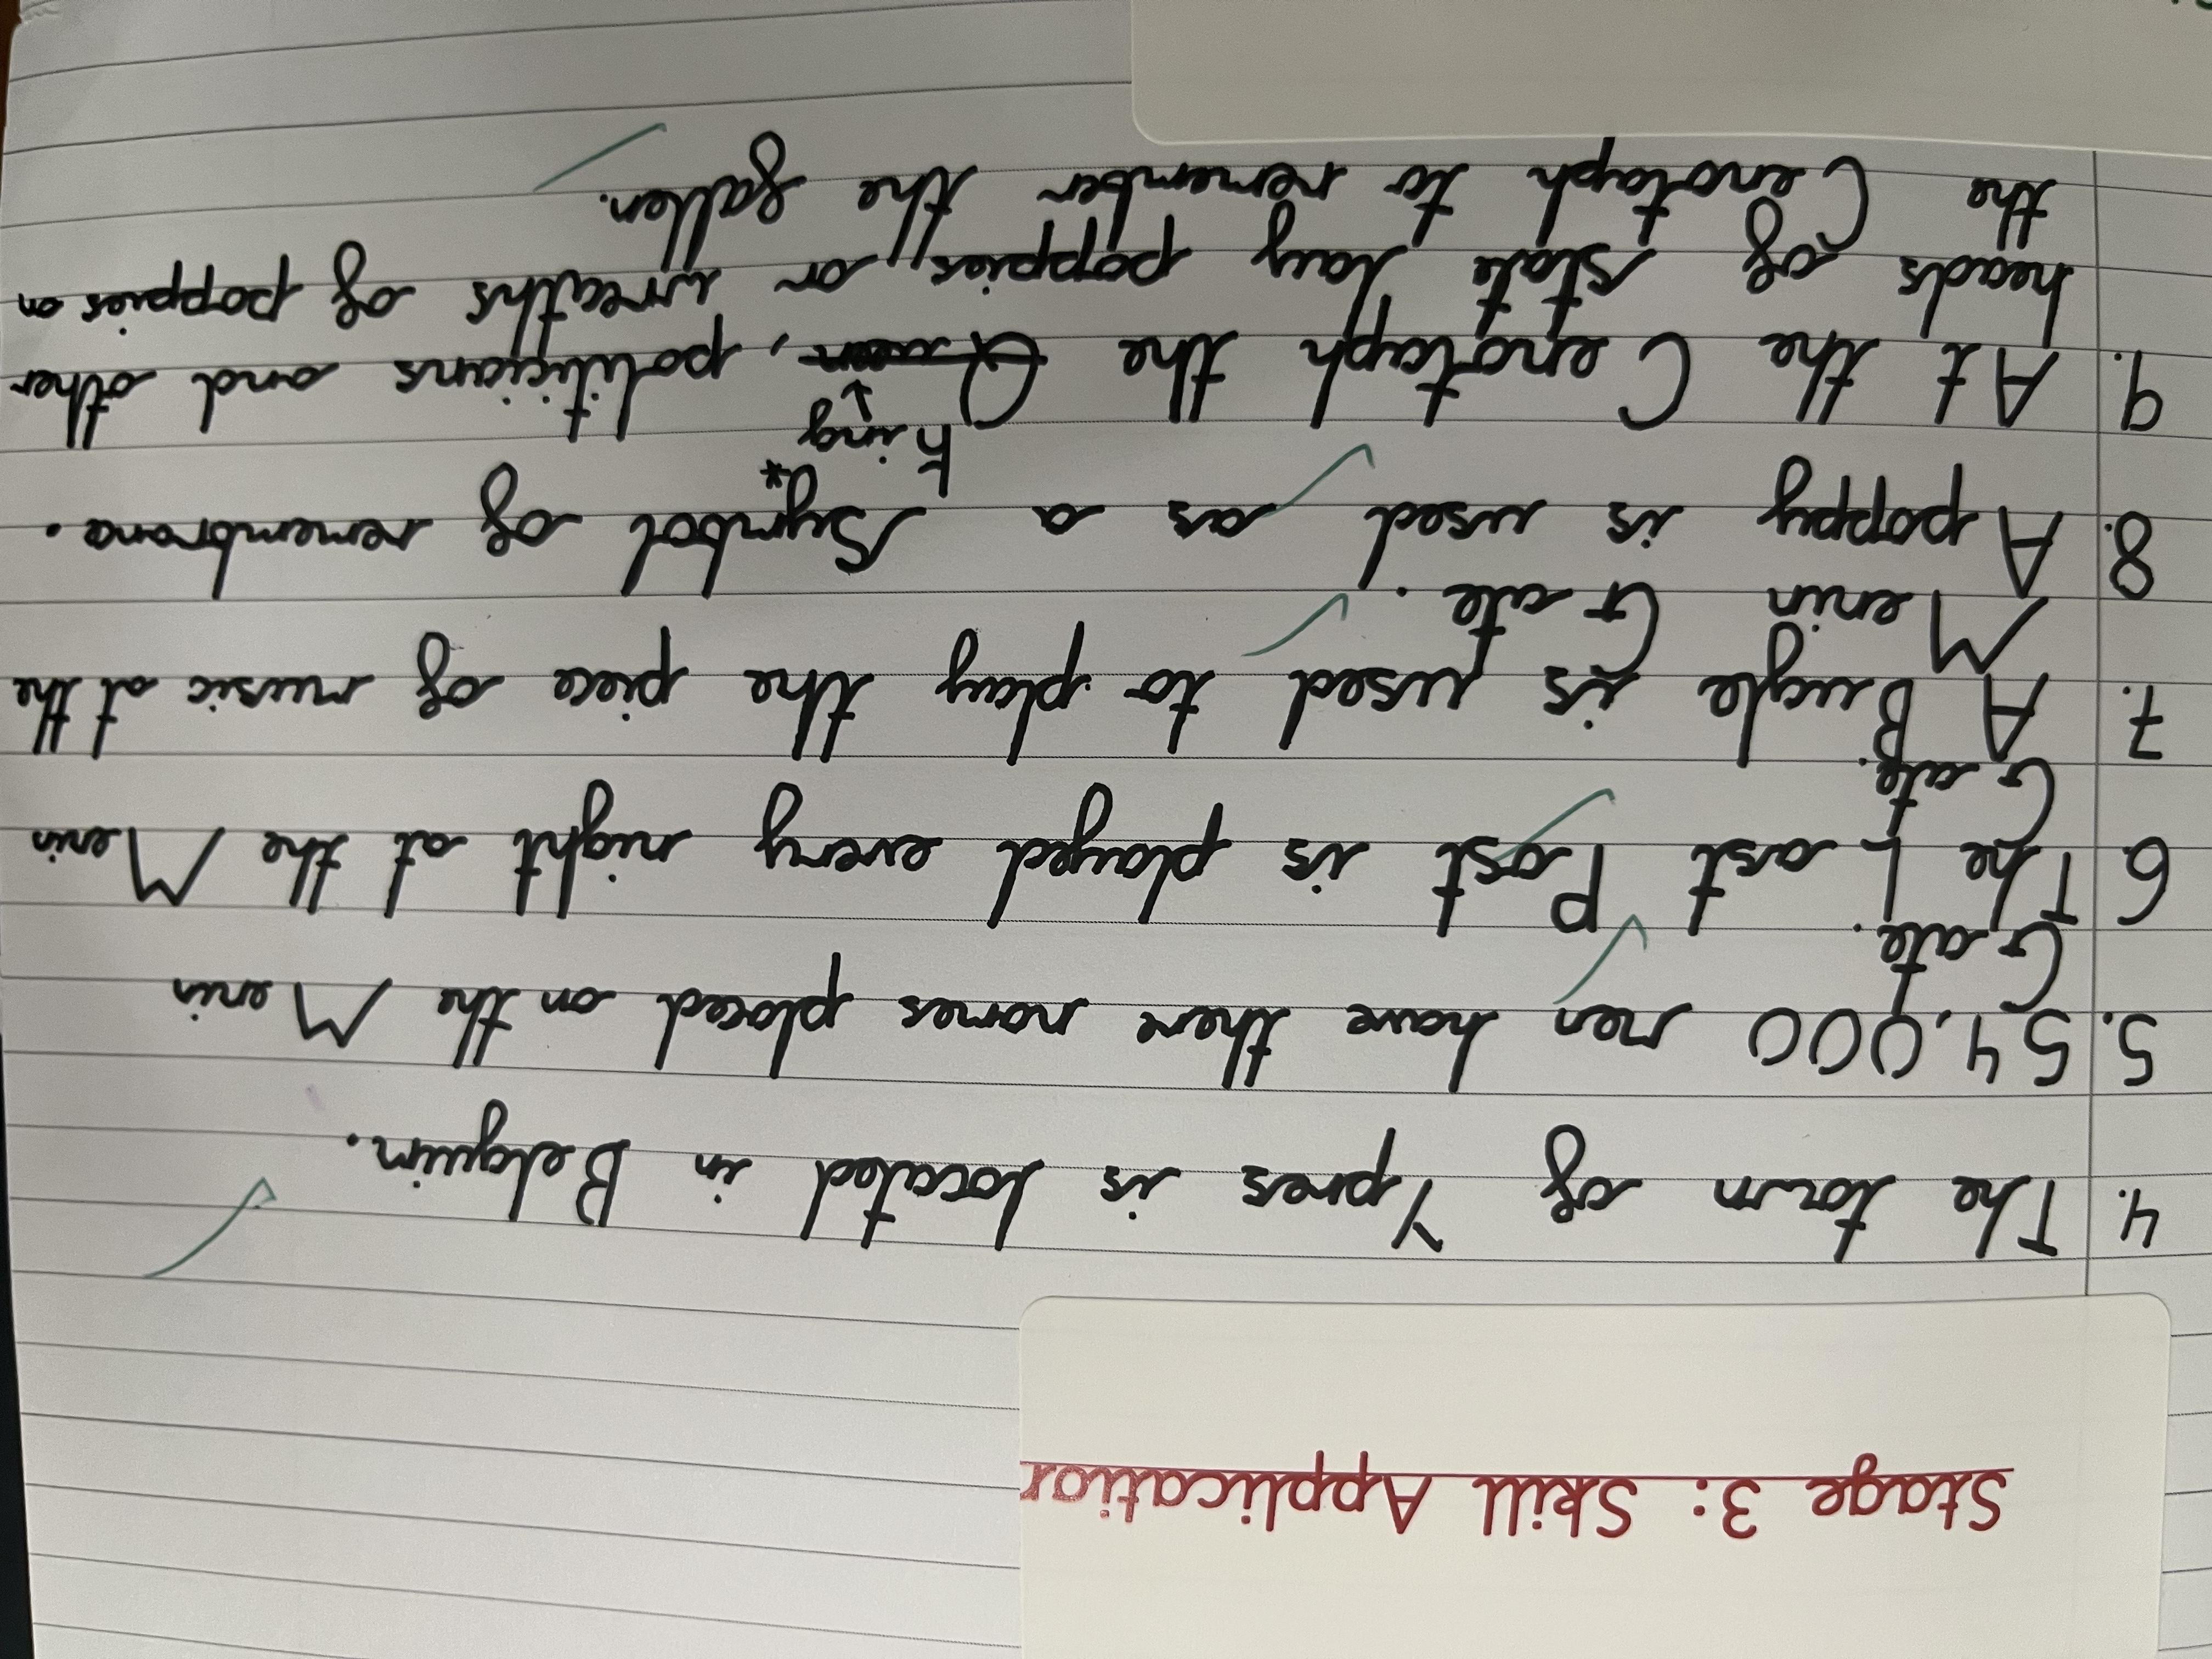 Stage 3: Skill Application
4. The town of Ypres is located in Belguim.
5. 54,000 men have there names placed on the Menin
Gate.
6. The Last Post is played every night at the Menin
Gate.
7. A Bugle is used to play the piece of music at the
Menin Gate.
8. A poppy is used as a symbol of remembrance.
King*
9. At the Cenotaph the Queen, politicians and other
heads of state lay poppies, or wreaths of poppies on
the Cenotaph to remember the fallen.